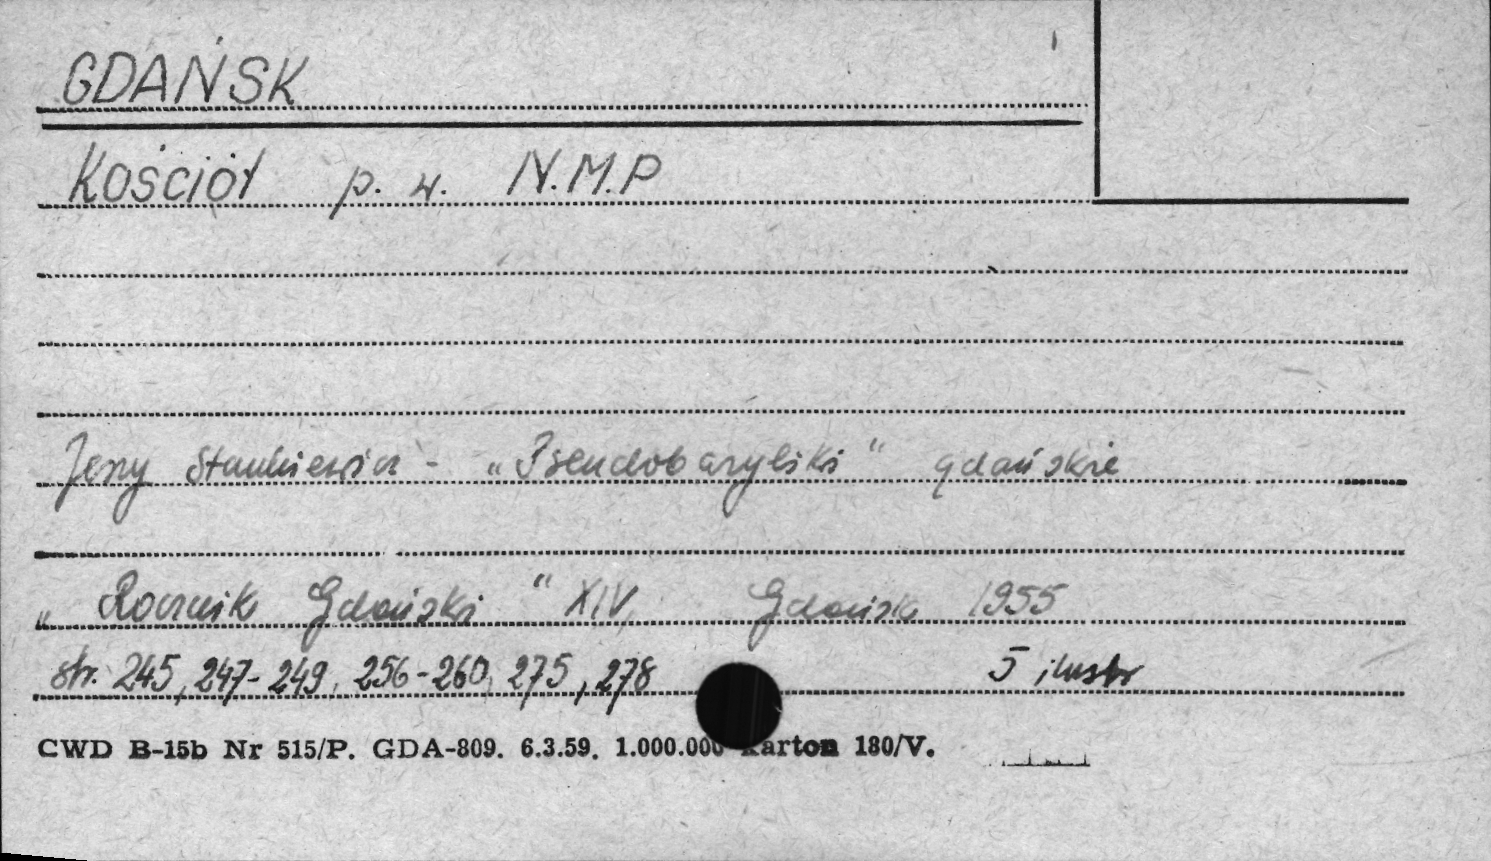 GDAŃSK
Kościół p. w. N.M.P
Jerzy Stankiewicz - „Pseudobazyliki" gdańskie
„Rocznik Gdański" XIV Gdańsk 1955
str. 245, 247-249, 256-260, 275, 278 5 ilustr
CWD B-15b Nr 515/P. GDA-809. 6.3.59. 1.000.000 Karton 180/V.